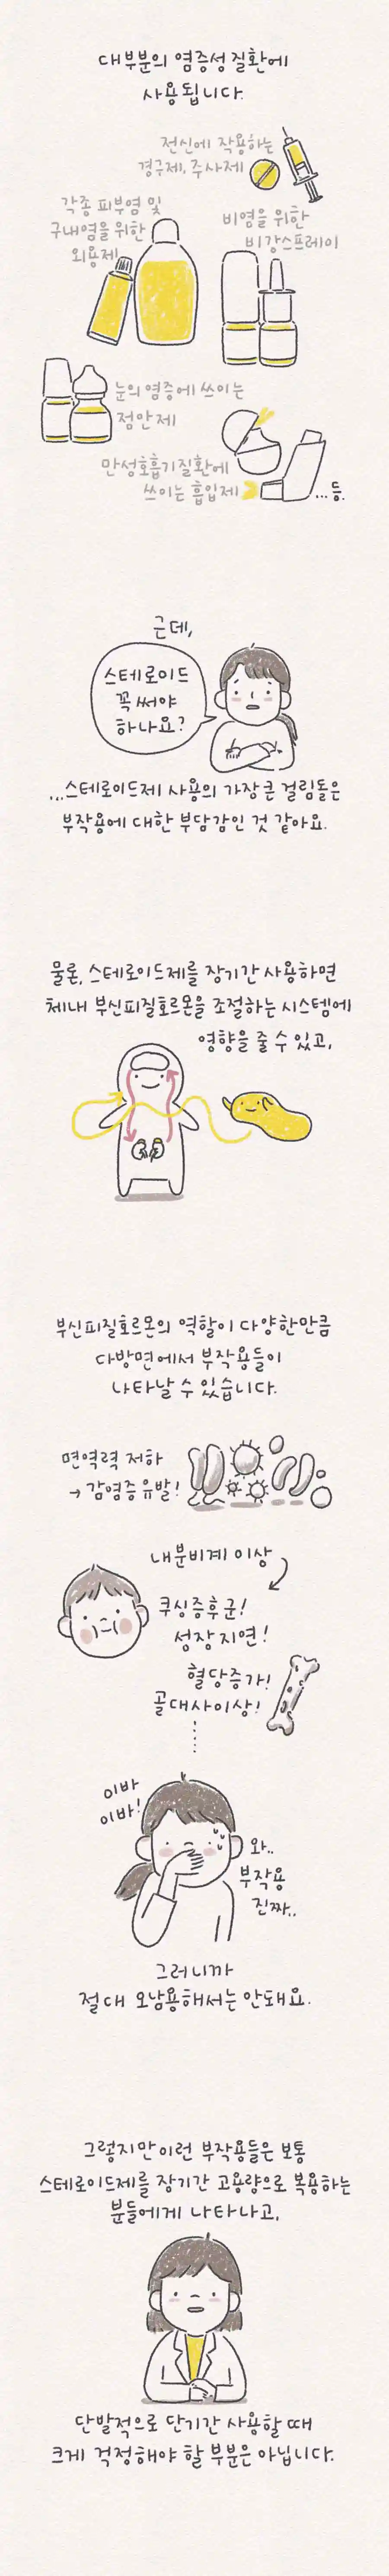 대부분의 염증성질환에
사용됩니다.
전신에 작용하는
경구제, 주사제
각종 피부염 및
구내염을 위한
외용제
비염을 위한
비강스프레이
눈의 염증에 쓰이는
점안제
만성호흡기질환에
쓰이는 흡입제
...등.
근데,
스테로이드
꼭 써야
하나요?
...스테로이드제 사용의 가장 큰 걸림돌은
부작용에 대한 부담감인 것 같아요.
물론, 스테로이드제를 장기간 사용하면
체내 부신피질호르몬을 조절하는 시스템에
영향을 줄 수 있고,
부신피질호르몬의 역할이 다양한만큼
다방면에서 부작용들이
나타날 수 있습니다.
면역력 저하
→ 감염증 유발!
내분비계 이상
쿠싱증후군!
성장지연!
혈당증가!
골대사이상!
이바
이바!
와..
부작용
진짜..
그러니까
절대 오남용해서는 안돼요.
그렇지만 이런 부작용들은 보통
스테로이드제를 장기간 고용량으로 복용하는
분들에게 나타나고,
단발적으로 단기간 사용할 때
크게 걱정해야 할 부분은 아닙니다.